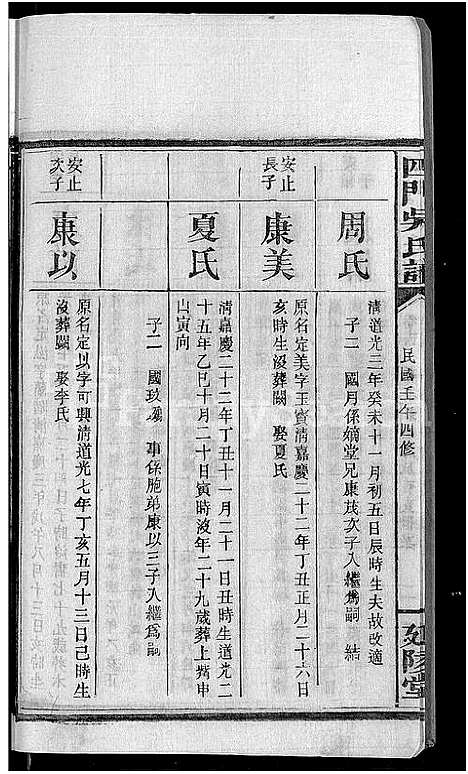 四門吳氏譜
民國壬午四修
延陵堂
周氏
清道光三年癸未十一月初五日辰時生夫故改適
子二 國月係嫡堂兄康茂次子入繼為嗣 結
安止長子
康美
原名定美字玉賓清嘉慶二十二年丁丑正月二十六日
亥時生沒葬闕 娶夏氏
夏氏
清嘉慶二十二年丁丑十一月二十一日丑時生道光二
十五年乙巳十月二十日寅時沒年二十九歲葬上嵴申
山寅向
子二 國玖 事係胞弟康以三子入繼為嗣
安止次子
康以
原名定以字可興清道光七年丁亥五月十三日己時生
沒葬闕 娶李氏